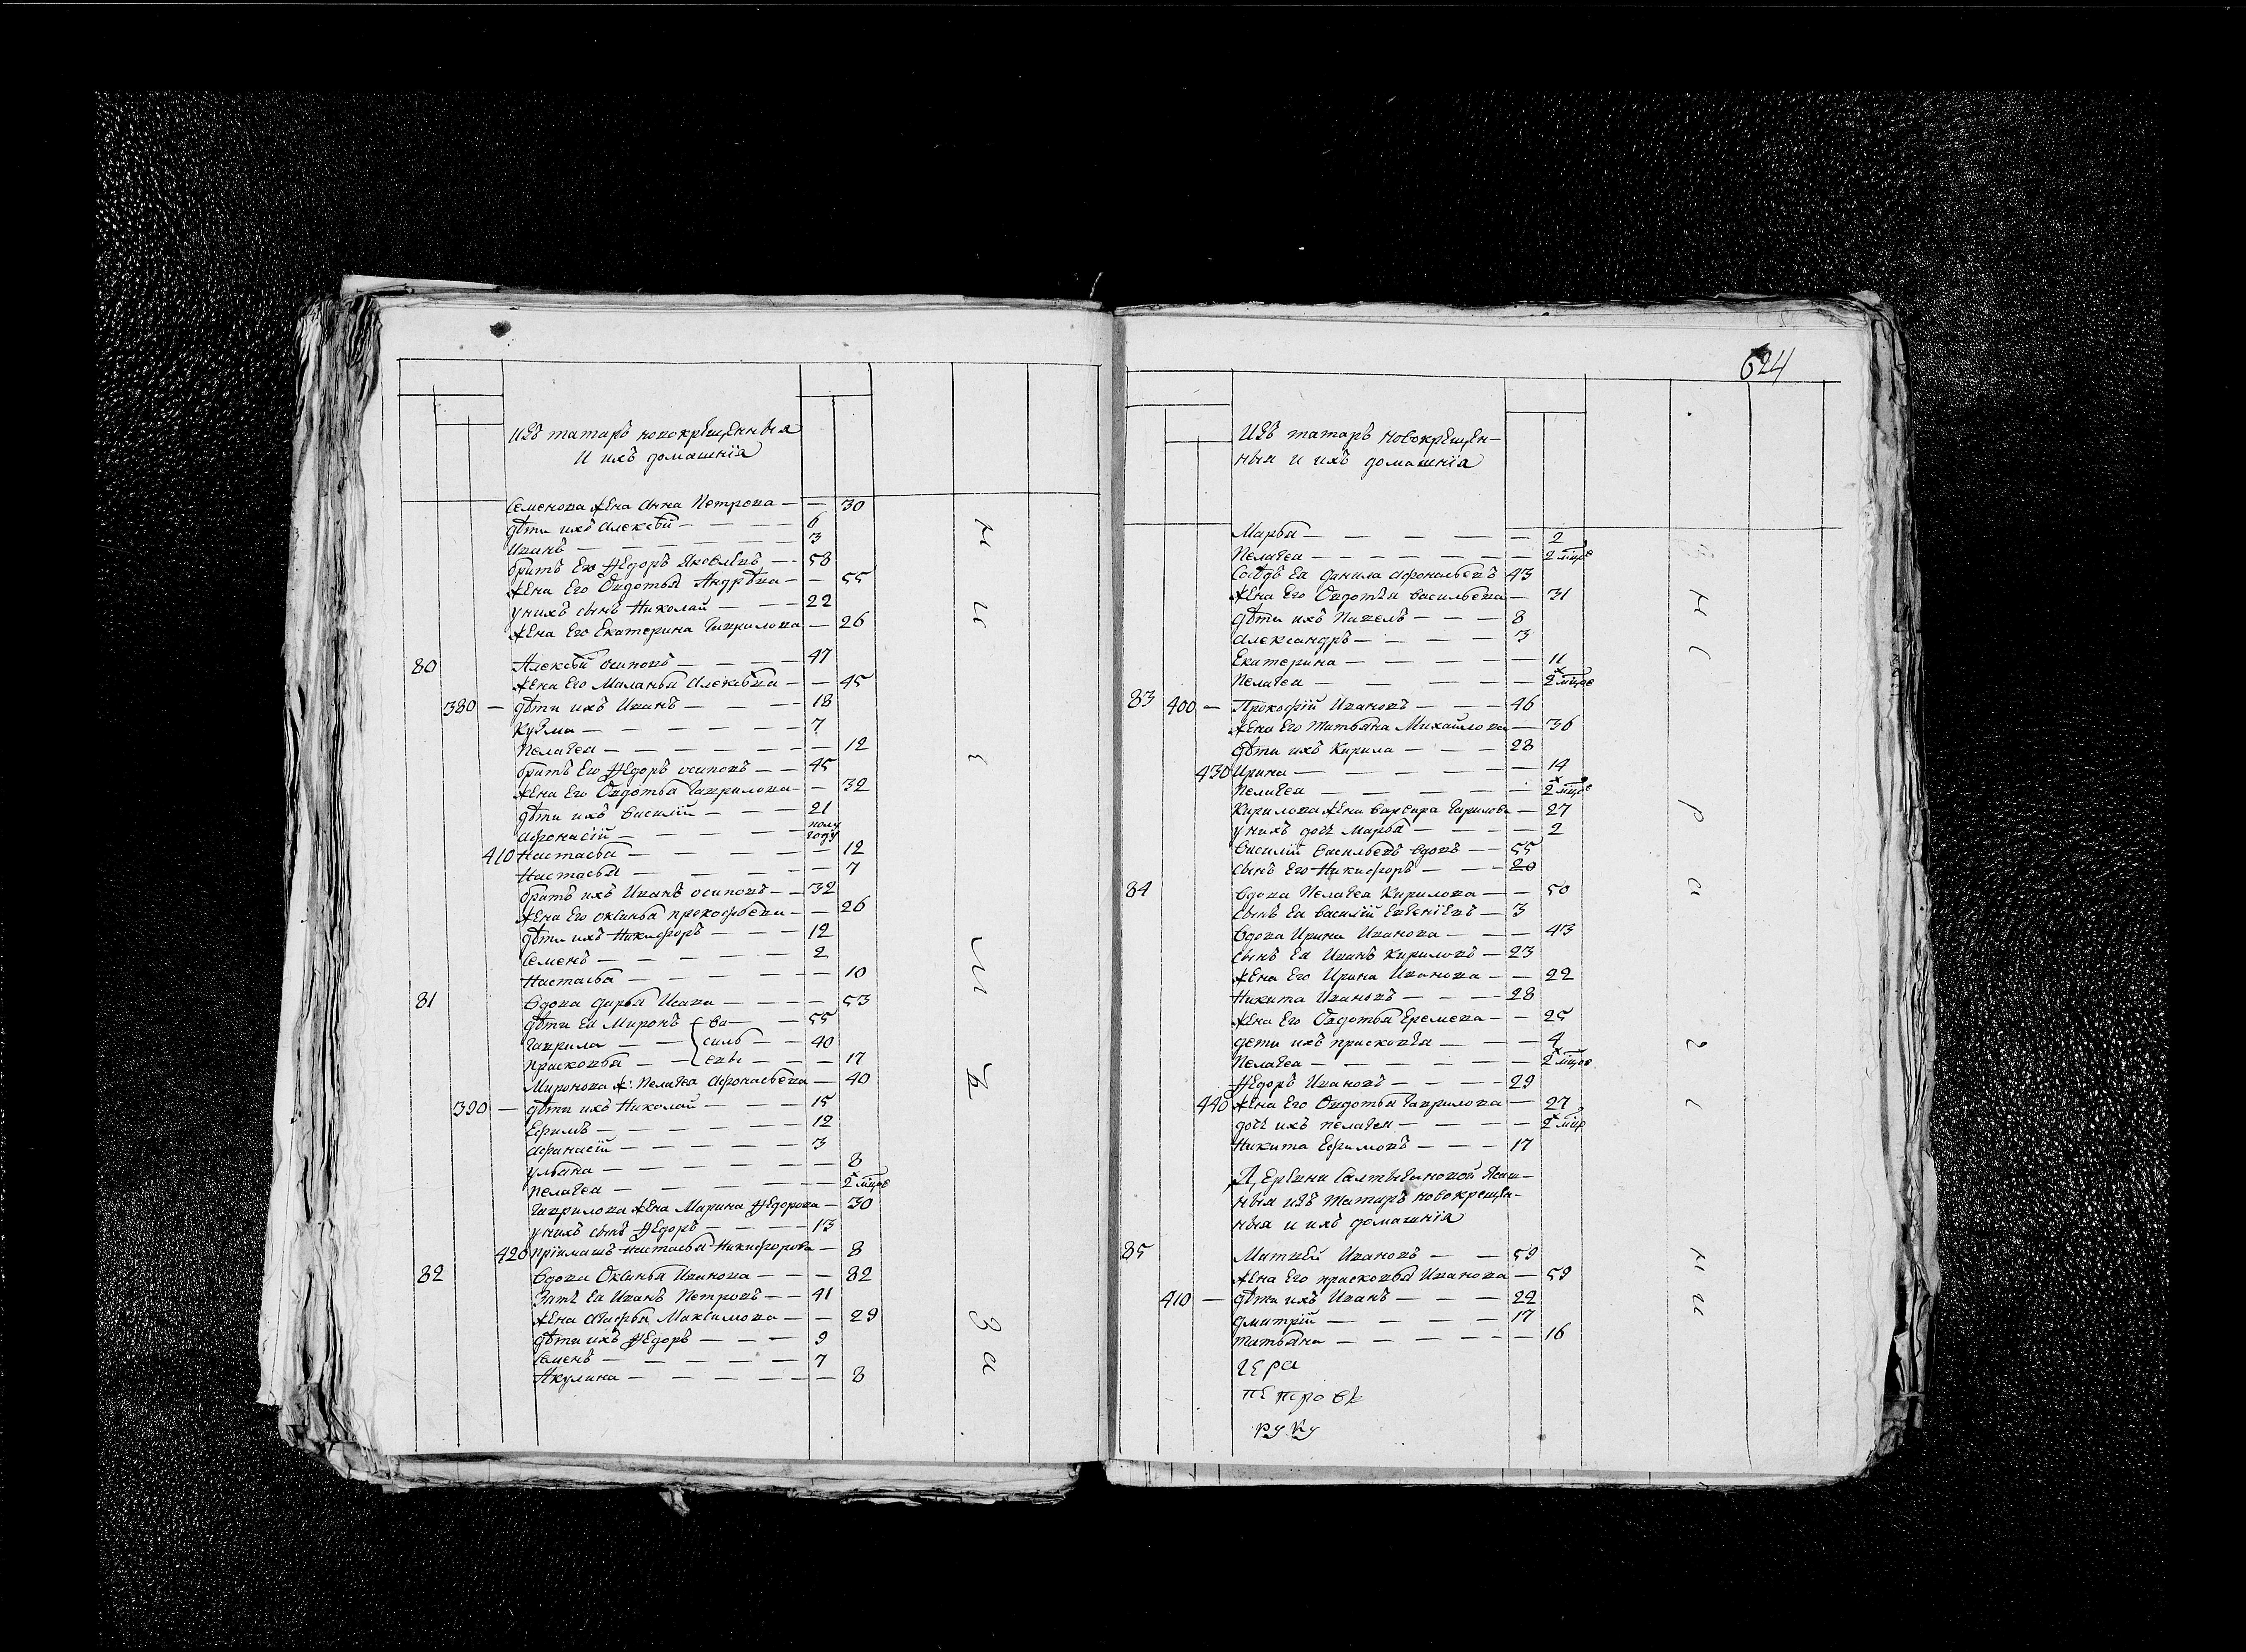 Изъ татаръ новокрещенныя
и ихъ домашнія
Семенова жена Анна Петрова — — 30
дѣти ихъ Алексѣй — 6
Иванъ — 3
братъ Его Ѳедоръ Яковлевъ — 58
жена Его Овдотья Андрѣвна — — 55
у нихъ сынъ Николай — 22
жена Его Екатерина Гаврилова — 26
80 Алексѣй осиповъ — 47
жена Его Маланья Алексѣвна — — 45
380 — дѣти ихъ Иванъ — 18
Кузма — 7
Пелагея — — 12
братъ Его Ѳедоръ осиповъ — 45
жена Его Овдотья Гаврилова — — 32
дѣти ихъ Василій — 21
Афонасій — полу году
410 Настасья — — 12
Настасья — — 7
братъ ихъ Иванъ осиповъ — 32
жена Его оксинья прокофьева — — 26
дѣти ихъ Никифоръ — 12
Семенъ — 2
Настасья — — 10
81 вдова дарья Исаева — — 53
дѣти Ея Миронъ { ва — 55
Гаврила — { силь — 40
Прасковья — { евы — — 17
Миронова ж: Пелагея Афонасьева — 40
390 — дѣти ихъ Николай — 15
Ефимъ — 12
Афанасій — 3
Ульяна — — 8
Пелагея — — 2 мцѣ
Гаврилова жена Марина Ѳедорова — 30
у нихъ сынъ Ѳедоръ — 13
420 пріимашъ настасья Никифорова — 8
82 вдова Оксинья Иванова — — 82
зять Ея Иванъ Петровъ — 41
жена Агафья Максимова — — 29
дѣти ихъ Ѳедоръ — 9
Семенъ — 7
Акулина — — 8
624
Изъ татаръ новокрещен-
ныя и ихъ домашнія
Марья — — 2
Пелагея — — 2 мцѣ
Сосѣдъ Ея данила Афонасьевъ 43
жена Его Овдотья васильева — 31
дѣти ихъ Павелъ — 8
Александръ — 3
Екатерина — — 11
Пелагея — — 2 мцѣ
83 400 — Прокофій Ивановъ — 46
жена Его Татьяна Михайлова — 36
дѣти ихъ Кирила — 28
430 Ирина — — 14
Пелагея — — 2 мцѣ
Кирилова жена варвара Гаврилова — 27
у нихъ дочь Марья — — 2
Василій Васильевъ вдовъ — 55
сынъ Его Никифоръ — 20
84 вдова Пелагея Кирилова — — 50
сынъ Ея Василій Евгеніевъ — 3
вдова Ирина Иванова — — 43
сынъ Ея Иванъ Кириловъ — 23
жена Его Ирина Иванова — — 22
Никита Ивановъ — 28
жена Его Овдотья Еремеева — — 25
дети ихъ прасковья — — 4
Пелагея — — 2 мцѣ
Ѳедоръ Ивановъ — 29
440 жена Его Овдотья Гаврилова — 27
дочь ихъ пелагея — — 2 мцѣ
Никита Ефимовъ — 17
Ясаш-
ныя изъ татаръ новокрещен-
ныя и ихъ домашнія
85 Матвѣй Ивановъ — 59
жена Его прасковья Иванова — 59
410 — дѣти ихъ Иванъ — 22
дмитрій — 17
татьяна — — 16
гера
петровъ
руку